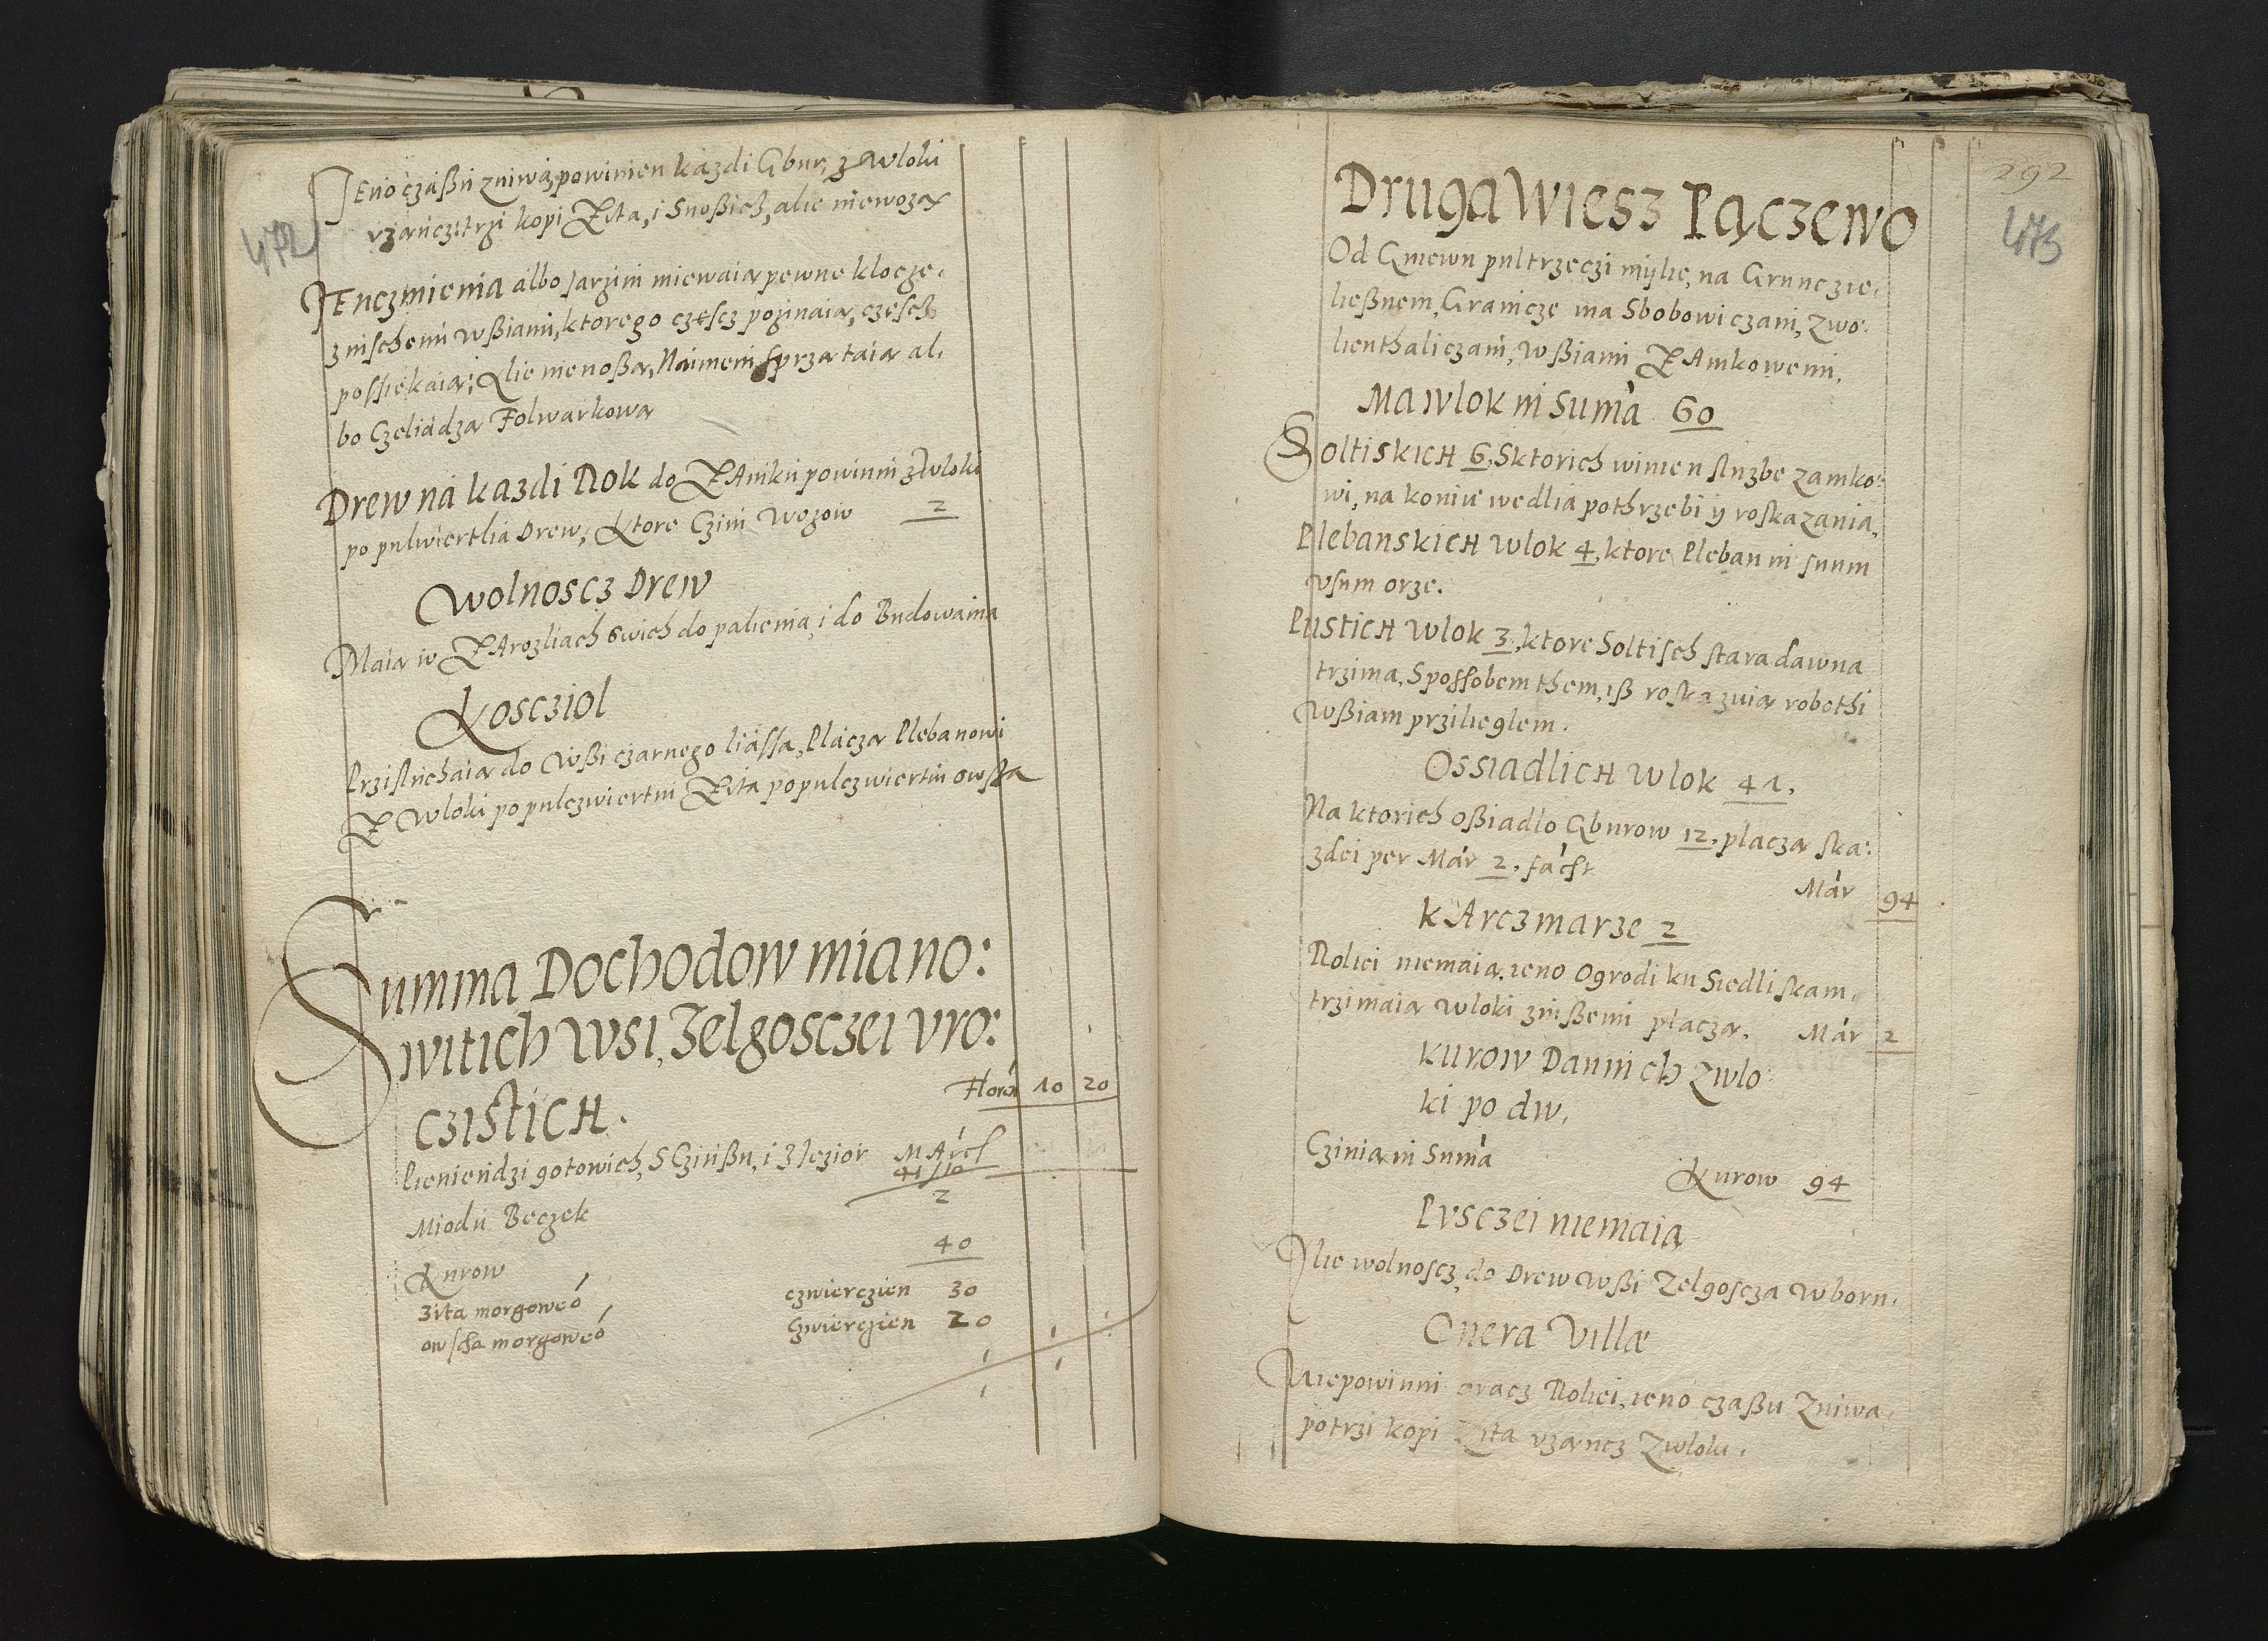 472
Jeno czaßu zniwa, powinien kazdi Gbur, z Wloki
vzancz trzi kopi Zita, i Snoßicz, alie niewoza
Jenczmienia albo Jarzini miewaia pewne klocze.
z nischemi wßiami, ktorego czescz pozinaia, czescz
possiekaia; Alie nienoßa, Naimem sprzataia al.
bo Czeliadza Folwarkowa
Drew na kazdi Rok do ZAmku powinni z Wloki
po pulwiertlia Drew, Ktore Czini Wozow 2
Wolnoscz Drew
Maia w ZAroзliach swich do palienia, i do Budowania
Koscziol
Przisluchaia do Wßi czarnego liassa, Placza Plebanowi
Z Wloki po pulczwiertni Zita po pulczwiertni owssa
Summa Dochodow miano:
witich Wsi, Zelgosczei vro:
czistich.
Floren 10 20
Pieniendzi gotowich, S Czinßu, i z Jezior MArcs 41/10
Miodu Beczek 2
Kurow 40
Zita morgoweo czwierczien 30
owssa morgoweo Czwierczien 20
292
473
Druga Wiesz Pączewo
Od Gniewu pultrzeczi mijlie, na Grunczie.
liessnem, Granicze ma Sbobowiczani, Zwo.
lienthaliczani, Wßiami ZAmkowemi.
Ma Wlok in Suma 60
Soltiskich 6, Sktorich winien sluzbe zamko:
wi, na koniu wedlia pothrzebi y roskazania,
Plebanskich Wlok 4, ktore Pleban in suum
vsum orze.
Pustich Wlok 3, ktore Soltisch stara dawna
trzima, Spossobem them, iß roskazuia robothi
Wßiam przilieglem.
Ossiadlich Wlok 41.
Na ktorich oßiadlo Gburow 12, placza ska:
zdei per Mar 2. facst
Mar 94
KArczmarze 2
Roliei niemaia, ieno Ogrodi ku Siedliskam.
trzimaia Wloki znißemi placza. Mar 2
Kurow Dannich Zwlo
ki po dw.
Czinia in Suma
Kurow 94
Pvsczei niemaia
Alie wolnoscz do Drew Wßi Zelgoscza Wboru.
Onera Villæ
Niepowinni oracz Roliei, ieno czaßu Zniwa.
potrzi kopi Zita vzancz Zwloki.